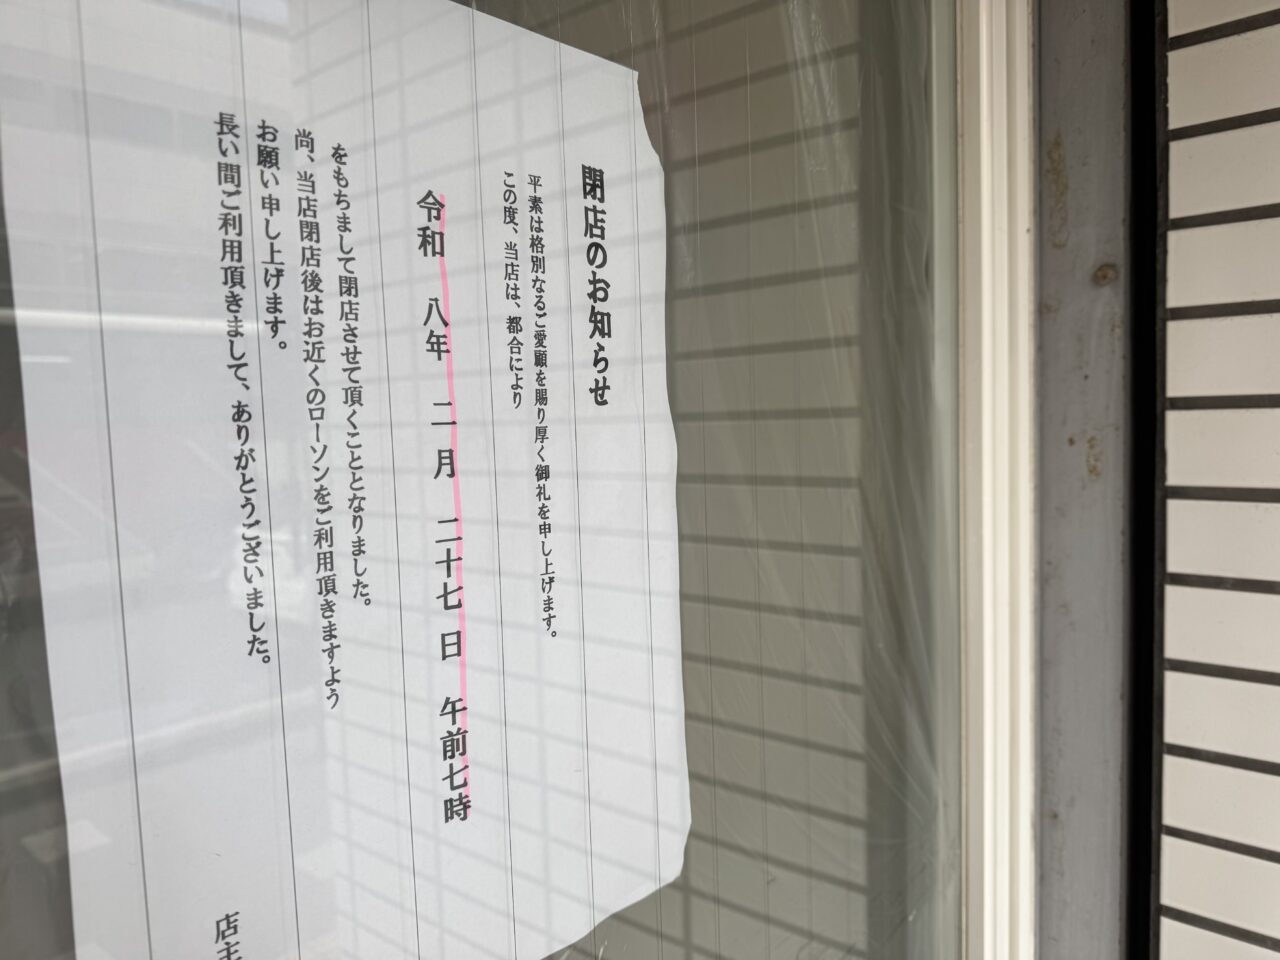 閉店のお知らせ
平素は格別なるご愛顧を賜り厚く御礼を申し上げます。
この度、当店は、都合により
令和 八年 二月 二十七日 午前七時
をもちまして閉店させて頂くこととなりました。
尚、当店閉店後はお近くのローソンをご利用頂きますよう
お願い申し上げます。
長い間ご利用頂きまして、ありがとうございました。
店主